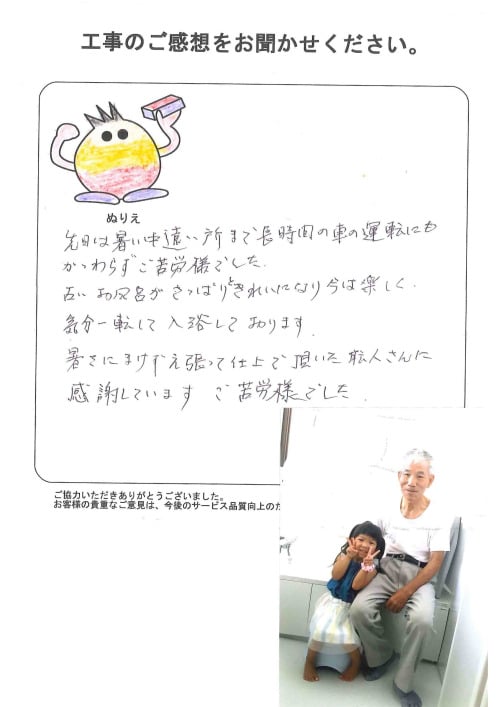 工事のご感想をお聞かせください。
ぬりえ
先日は暑い中遠い所まで長時間の車の運転にも
かかわらずご苦労様でした。
古いお風呂がさっぱりときれいになり今は楽しく
気分一転して入浴しております。
暑さにまけずえ張って仕上て頂いた職人さんに
感謝しています ご苦労様でした。
ご協力いただきありがとうございました。
お客様の貴重なご意見は、今後のサービス品質向上のた